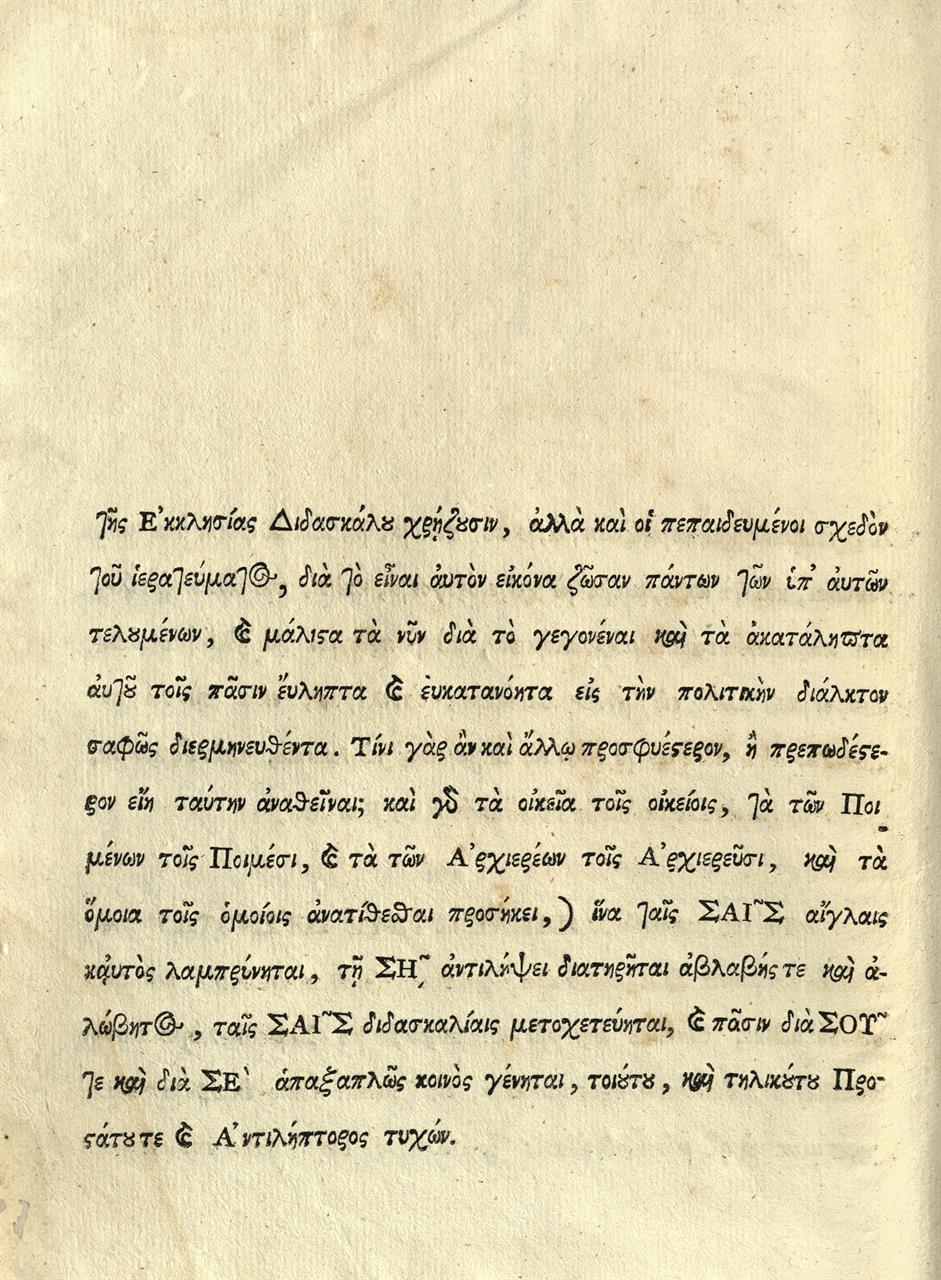 τῆς Ἐκκλησίας Διδασκάλȣ χρῄζȣσιν, ἀλλὰ καὶ οἱ πεπαιδευμένοι σχεδὸν
τοῦ ἱερατεύματος, διὰ τὸ εἶναι ἀυτὸν εἰκόνα ζῶσαν πάντων τῶν ὑπ' ἀυτῶν
τελȣμένων, ϗ μάλιϛα τὰ νῦν διὰ τὸ γεγονέναι καὶ τὰ ἀκατάληπτα
ἀυτȣ͂ τοῖς πᾶσιν ἔυληπτα ϗ ἐυκατανόητα εἰς τὴν πολιτικὴν διάλκτον
σαφῶς διερμηνευθέντα. Τίνι γὰρ ἂν καὶ ἄλλῳ προσφυέϛερον, ἢ πρεπωδέϛε-
ρον εἴη ταύτην ἀναθεῖναι; καὶ γὰρ τὰ οἰκεῖα τοῖς οἰκείοις, τὰ τῶν Ποι
μένων τοῖς Ποιμέσι, ϗ τὰ τῶν Ἀρχιερέων τοῖς Ἀρχιερεῦσι, καὶ τὰ
ὅμοια τοῖς ὁμοίοις ἀνατίθεσθαι προσήκει,) ἵνα ταῖς ΣΑΙ῀Σ αἴγλαις
κᾀυτὸς λαμπρύνηται, τῇ Σῌ͂ ἀντιλήψει διατηρῆται ἀβλαβής τε καὶ ἀ-
λώβητος, ταῖς ΣΑΙ῀Σ διδασκαλίαις μετοχετεύηται, ϗ πᾶσιν διὰ ΣΟΥ῀
τε καὶ διὰ ΣΕ` ἁπαξαπλῶς κοινὸς γένηται, τοιȣ́τȣ, καὶ τηλικȣ́τȣ Προ-
ϛάτȣ τε ϗ Ἀντιλήπτορος τυχών.